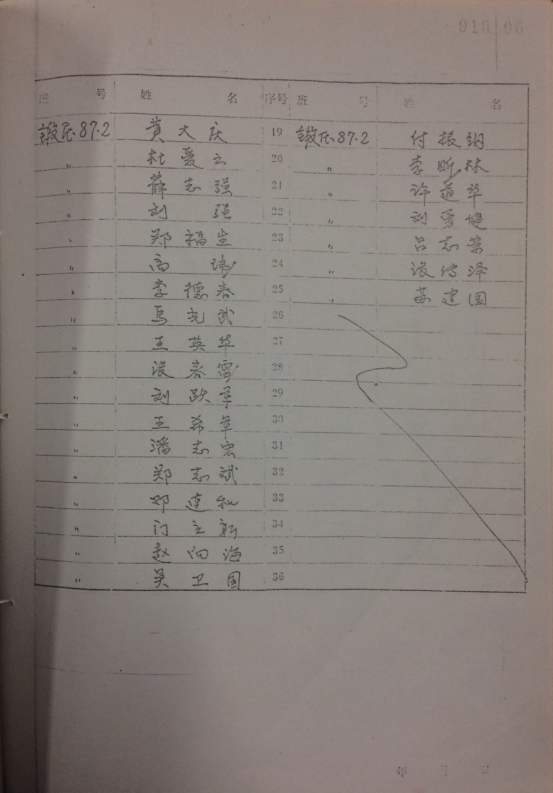 910 06
班 号 姓 名 序号 班 号 姓 名
锻压.87.2 黄大庆 19 锻压.87.2 付振钢
〃 杜爱云 20 〃 李昕林
〃 薛志强 21 〃 许道华
〃 刘强 22 〃 刘勇健
〃 郑福生 23 〃 吕志荣
〃 高 24 〃
〃 李德春 25 〃 苏建国
〃 马光武 26
〃 王英华 27
〃 28
〃 刘跃军 29
〃 王希军 30
〃 潘志宏 31
〃 郑志斌 32
〃 邓建松 33
〃 门立新 34
〃 赵向海 35
〃 吴卫国 36
年 月 日